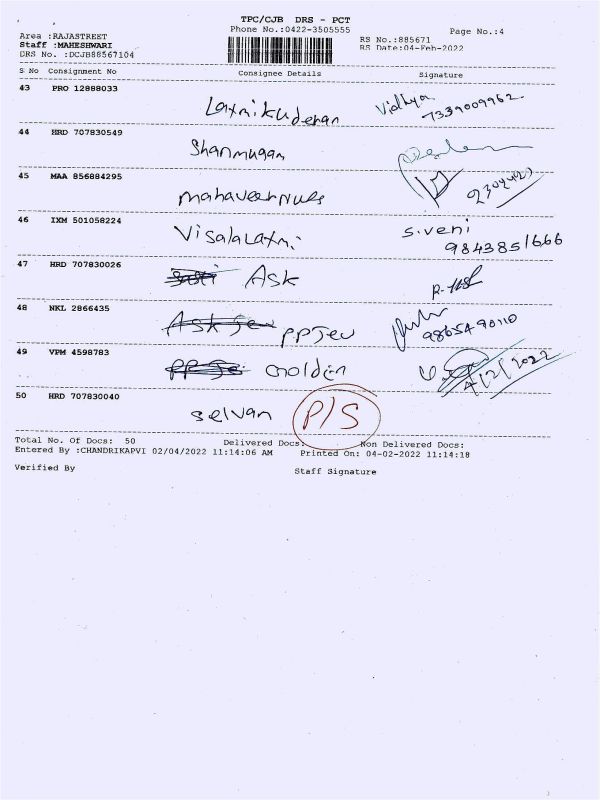 TPC/CJB DRS - PCT
Phone No.:0422-3505555 Page No.:4
Area :RAJASTREET RS No.:885671
Staff :MAHESHWARI RS Date:04-Feb-2022
DRS No. :DCJB88567104
S No Consignment No Consignee Details Signature
43 PRO 12888033
Laxmikuderan Vidhya
7339009962
44 HRD 707830549
Shanmugam
45 MAA 856884295
mahaveer
46 IXM 501058224
Visalalaxmi S.veni
9843851666
47 HRD 707830026
ASK
48 NKL 2866435
PPJew
9865490110
49 VPM 4598783
Golden 4/2/2022
50 HRD 707830040
Selvan P/S
Total No. Of Docs: 50 Delivered Docs: Non Delivered Docs:
Entered By :CHANDRIKAPVI 02/04/2022 11:14:06 AM Printed On: 04-02-2022 11:14:18
Verified By Staff Signature